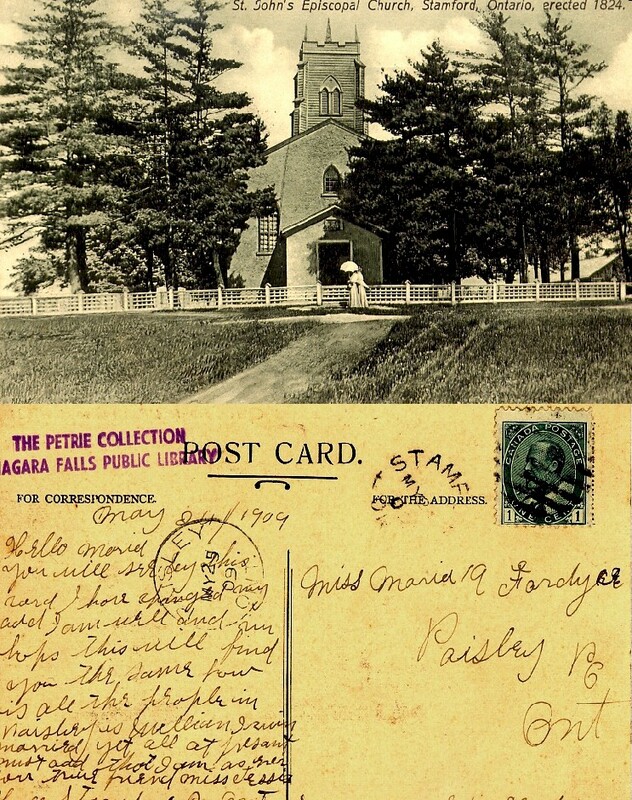 St. John's Episcopal Church, Stamford, Ontario, erected 1824.
THE PETRIE COLLECTION
IAGARA FALLS PUBLIC LIBRARY
POST CARD.
FOR CORRESPONDENCE.
FOR THE ADDRESS.
STAMF
MY
CANADA POSTAGE
1 ONE CENT 1
SLEY
MY 29
09
May 24/1909
Hello
you will see by this
card I have changed my
add I am well and in
hops this will find
you the same how
is all the people in
Paisley is
married yet all at presant
must add that I am as ever
our true friend miss Jessie
Miss
Paisley
Ont